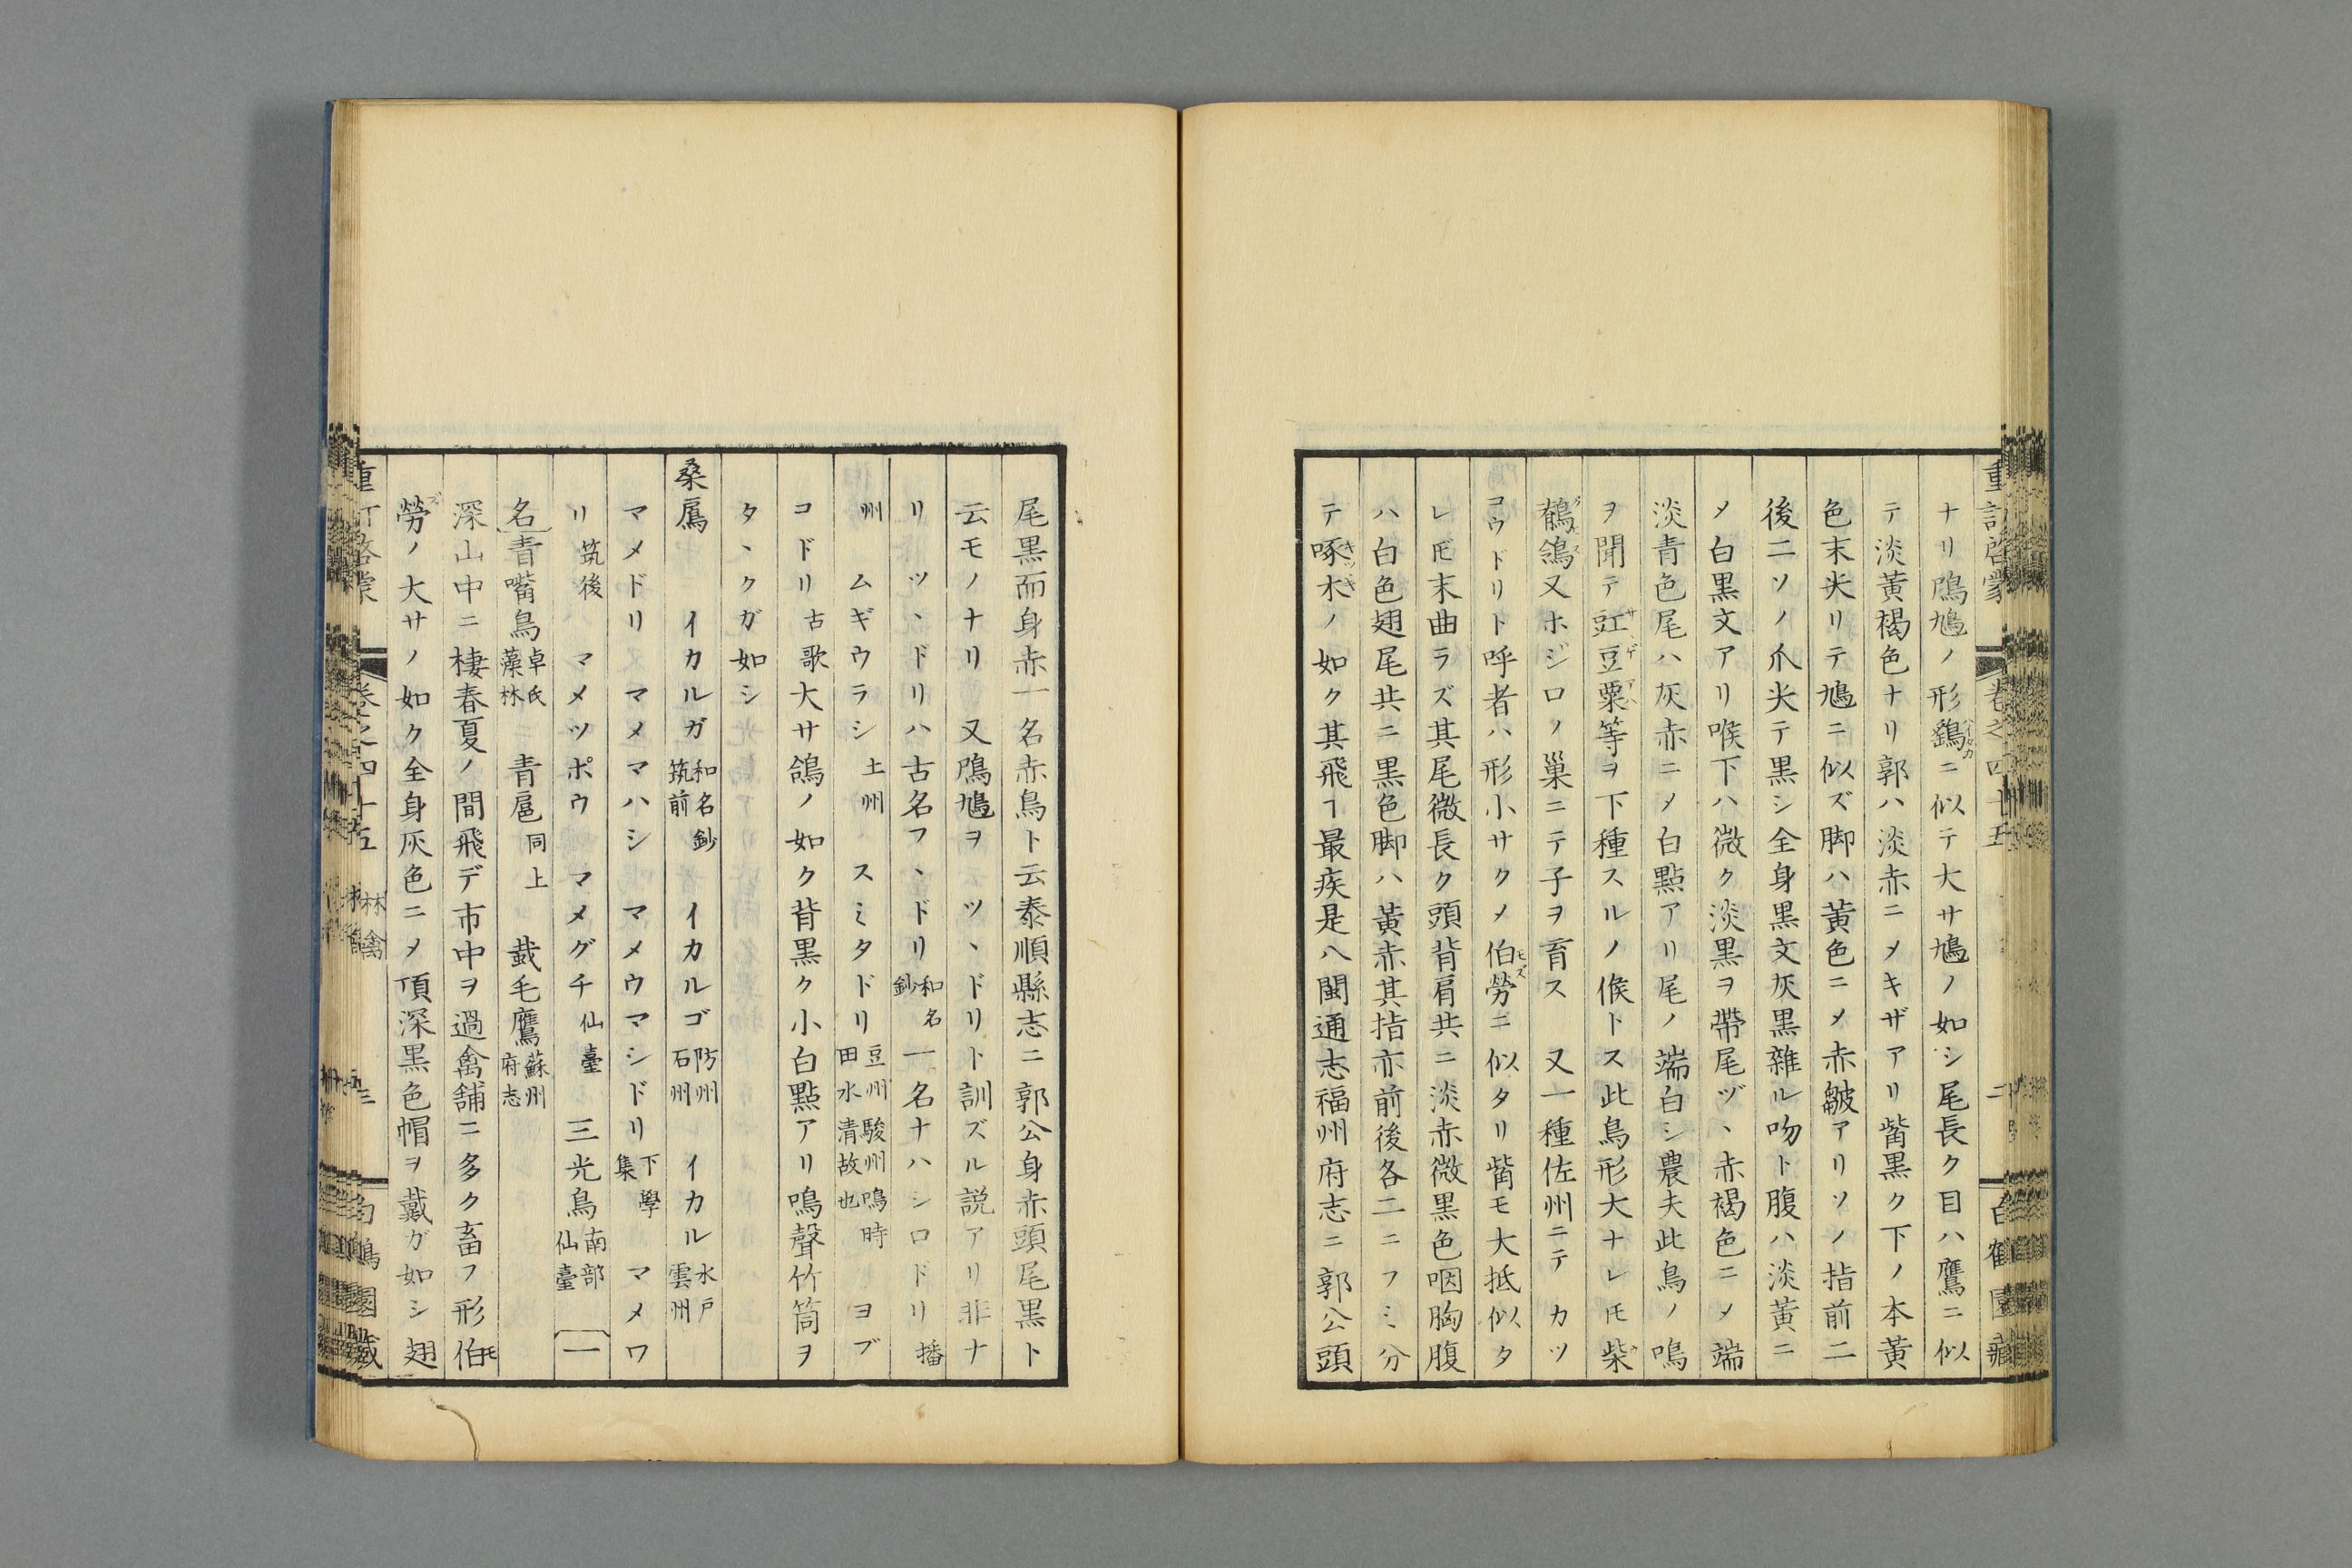 ナリ鳲鳩ノ形鷂ニ似テ大サ鳩ノ如シ尾長ク目ハ鷹ニ似
テ淡黃褐色ナリ郭ハ淡赤ニメキザアリ觜黑ク下ノ本黃
色末尖リテ鳩ニ似ズ脚ハ黃色ニメ赤皺アリソノ指前二
後二ツノ爪尖テ黑シ全身黑文灰黑雜ル吻ト腹ハ淡黃ニ
メ白黑文アリ喉下ハ微ク淡黑ヲ帶尾ヅヽ赤褐色ニメ端
淡青色尾ハ灰赤ニメ白點アリ尾ノ端白シ農夫此鳥ノ鳴
ヲ聞テ豇豆粟等ヲ下種スルノ候トス此鳥形大ナレ𪜈柴
鶺鴒又ホジロノ巢ニテ子ヲ育ス 又一種佐州ニテ カツ
コウドリト呼者ハ形小サクメ伯勞ニ似タリ觜モ大抵似タ
レ𪜈末曲ラズ其尾微長ク頭背肩共ニ淡赤微黑色咽胸腹
ハ白色翅尾共ニ黑色脚ハ黃赤其指亦前後各二ニフミ分
テ啄木ノ如ク其飛ヿ最疾是八閩通志福州府志ニ郭公頭
尾黑而身赤一名赤鳥ト云泰順縣志ニ郭公身赤頭尾黑ト
云モノナリ 又鳲鳩ヲ ツヽドリト訓ズル説アリ非ナ
リ ツヽドリハ古名フヽドリ和名鈔一名ナハシロドリ播
州 ムギウラシ土州 スミタドリ豆州駿州鳴時田水清故也 ヨブ
コドリ古歌大サ鴿ノ如ク背黑ク小白點アリ鳴聲竹筒ヲ
タヽクガ如シ
桑鳸 イカルガ和名鈔筑前 イカルゴ防州石州 イカル水戸雲州
マメドリ マメマハシ マメウマシドリ下學集 マメワ
リ筑後 マメツポウ マメグチ仙臺 三光鳥南部仙臺 一
名青嘴鳥卓氏藻林 青扈同上 𪀚毛鷹蘇州府志
深山中ニ棲春夏ノ間飛デ市中ヲ過禽舖ニ多ク畜フ形伯
勞ノ大サノ如ク全身灰色ニメ頂深黑色帽ヲ戴ガ如シ翅